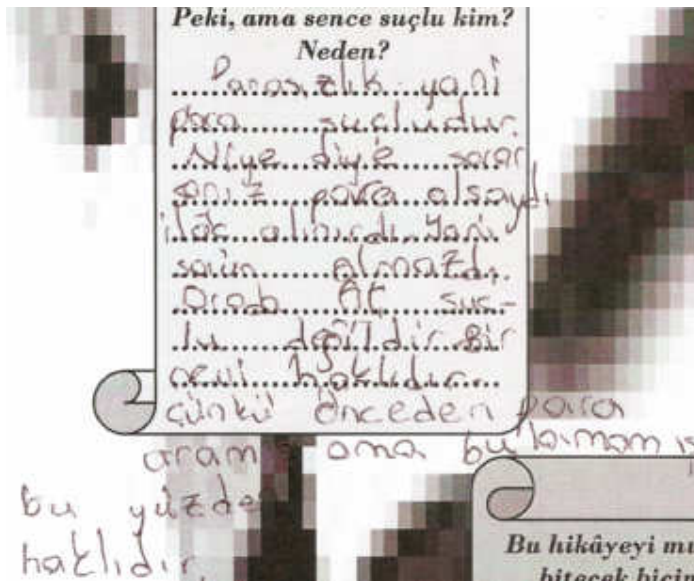 Peki, ama sence suçlu kim?
Neden?
Parasızlık yani
para suçludur.
Niye diye sorar
sanız para olsaydı
ilaç alınırdı. Yani
sorun olmazdı.
Arab At suç-
lu değildir. Bir
nevi haklıdır.
çünkü önceden para
aramış ama bulamamış
bu yüzden
haklıdır.
Bu hikâyeyi mu
bitecek biçim